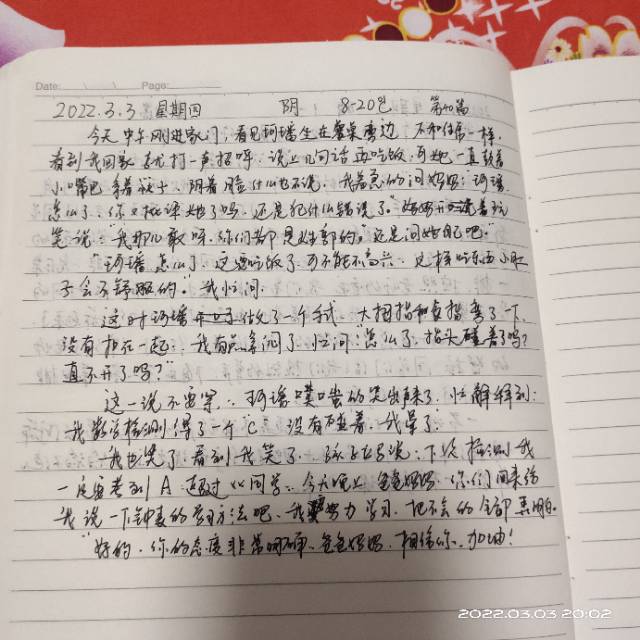 Date: Page:
2022.3.3 星期四 阴 8-20℃ 第40篇
今天中午刚进家门，看见珂瑶坐在餐桌旁边，不和往常一样，
看到我回家就打一声招呼，说上几句话再吃饭，可她一直鼓着
小嘴巴，阴着脸什么也不说，我着急的问妈妈：珂瑶
怎么了，你又批评她了吗，还是犯什么错误了。"妈妈开玩
笑说："我那儿敢呀，你们都是姓郭的，还是问她自己吧。"
"珂瑶怎么了，这要吃饭了，可不能不高兴，这样吃东西小肚
子会不舒服的。"我忙问
这时珂瑶做了一个手式，大拇指和食指弯了一下，
没有扣在一起，我有点急闷了，忙问"怎么了，指头碰着了吗？
直不开了吗？"
这一说不要紧，珂瑶噗嗤的笑出来了，忙解释到：
"我数学检测得了一个"C"没有碰着，我晕了。"
我也笑了，看到我笑了，说：下次检测我
一定要考到A，超过 同学，今天晚上爸爸妈妈，你们回来给
我说一下钟表的学习方法吧，我要努力学习，把不会的全部弄明白。
"好的，你的态度非常明确，爸爸妈妈，相信你，加油！
2022.03.03 20:02